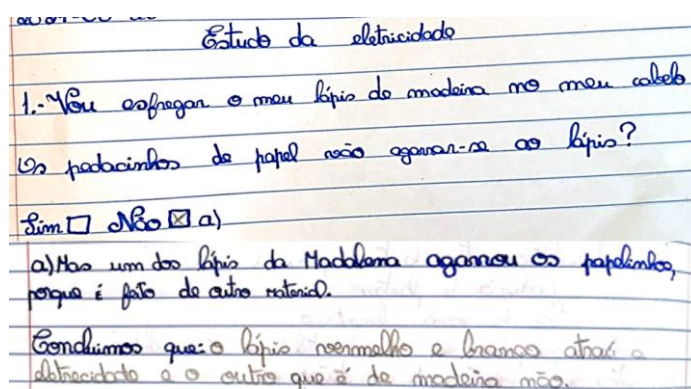 Estudo da eletricidade
1.- Vou esfregar o meu lápis de madeira no meu cabelo
Os pedacinhos de papel vão agarrar-se ao lápis?
Sim ☐ Não ☒ a)
a) Mas um dos lápis da Madalena agarrou os papelinhos,
porque é feito de outro material.
Concluimos que: o lápis vermelho e branco atrai a
eletrecidade e o outro que é de madeira não.